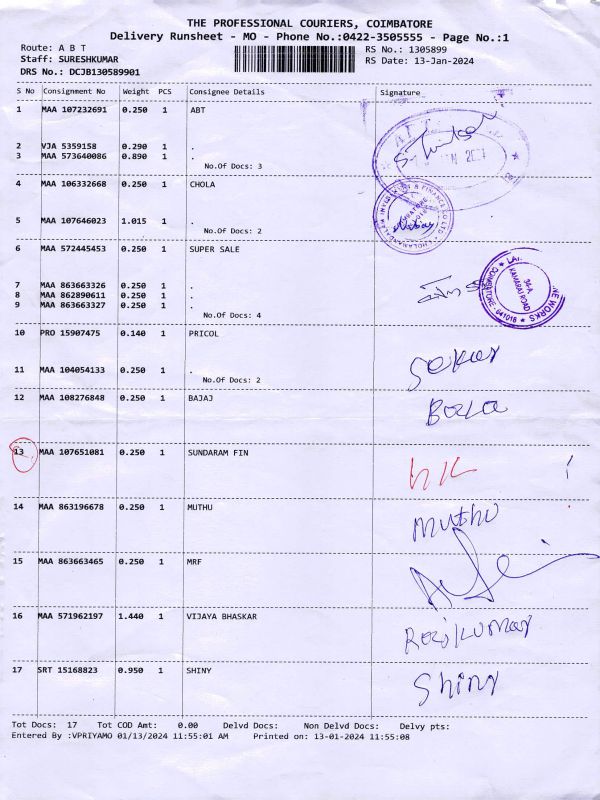 THE PROFESSIONAL COURIERS, COIMBATORE
Delivery Runsheet - MO - Phone No.:0422-3505555 - Page No.:1
Route: A B T
RS No.: 1305899
Staff: SURESHKUMAR
RS Date: 13-Jan-2024
DRS No.: DCJB130589901
S No Consignment No Weight PCS Consignee Details Signature
1 MAA 107232691 0.250 1 ABT
2 VJA 5359158 0.290 1 .
3 MAA 573640086 0.890 1 .
No.Of Docs: 3
4 MAA 106332668 0.250 1 CHOLA
5 MAA 107646023 1.015 1 .
No.Of Docs: 2
6 MAA 572445453 0.250 1 SUPER SALE
7 MAA 863663326 0.250 1 .
8 MAA 862890611 0.250 1 .
9 MAA 863663327 0.250 1 .
No.Of Docs: 4
KAMARAJ ROAD
COIMBATORE - 641018
10 PRO 15907475 0.140 1 PRICOL
Sekar
11 MAA 104054133 0.250 1 .
No.Of Docs: 2
12 MAA 108276848 0.250 1 BAJAJ
Bala
13 MAA 107651081 0.250 1 SUNDARAM FIN
14 MAA 863196678 0.250 1 MUTHU
Muthu
15 MAA 863663465 0.250 1 MRF
16 MAA 571962197 1.440 1 VIJAYA BHASKAR
17 SRT 15168823 0.950 1 SHINY
Shiny
Tot Docs: 17 Tot COD Amt: 0.00 Delvd Docs: Non Delvd Docs: Delvy pts:
Entered By :VPRIYAMO 01/13/2024 11:55:01 AM Printed on: 13-01-2024 11:55:08